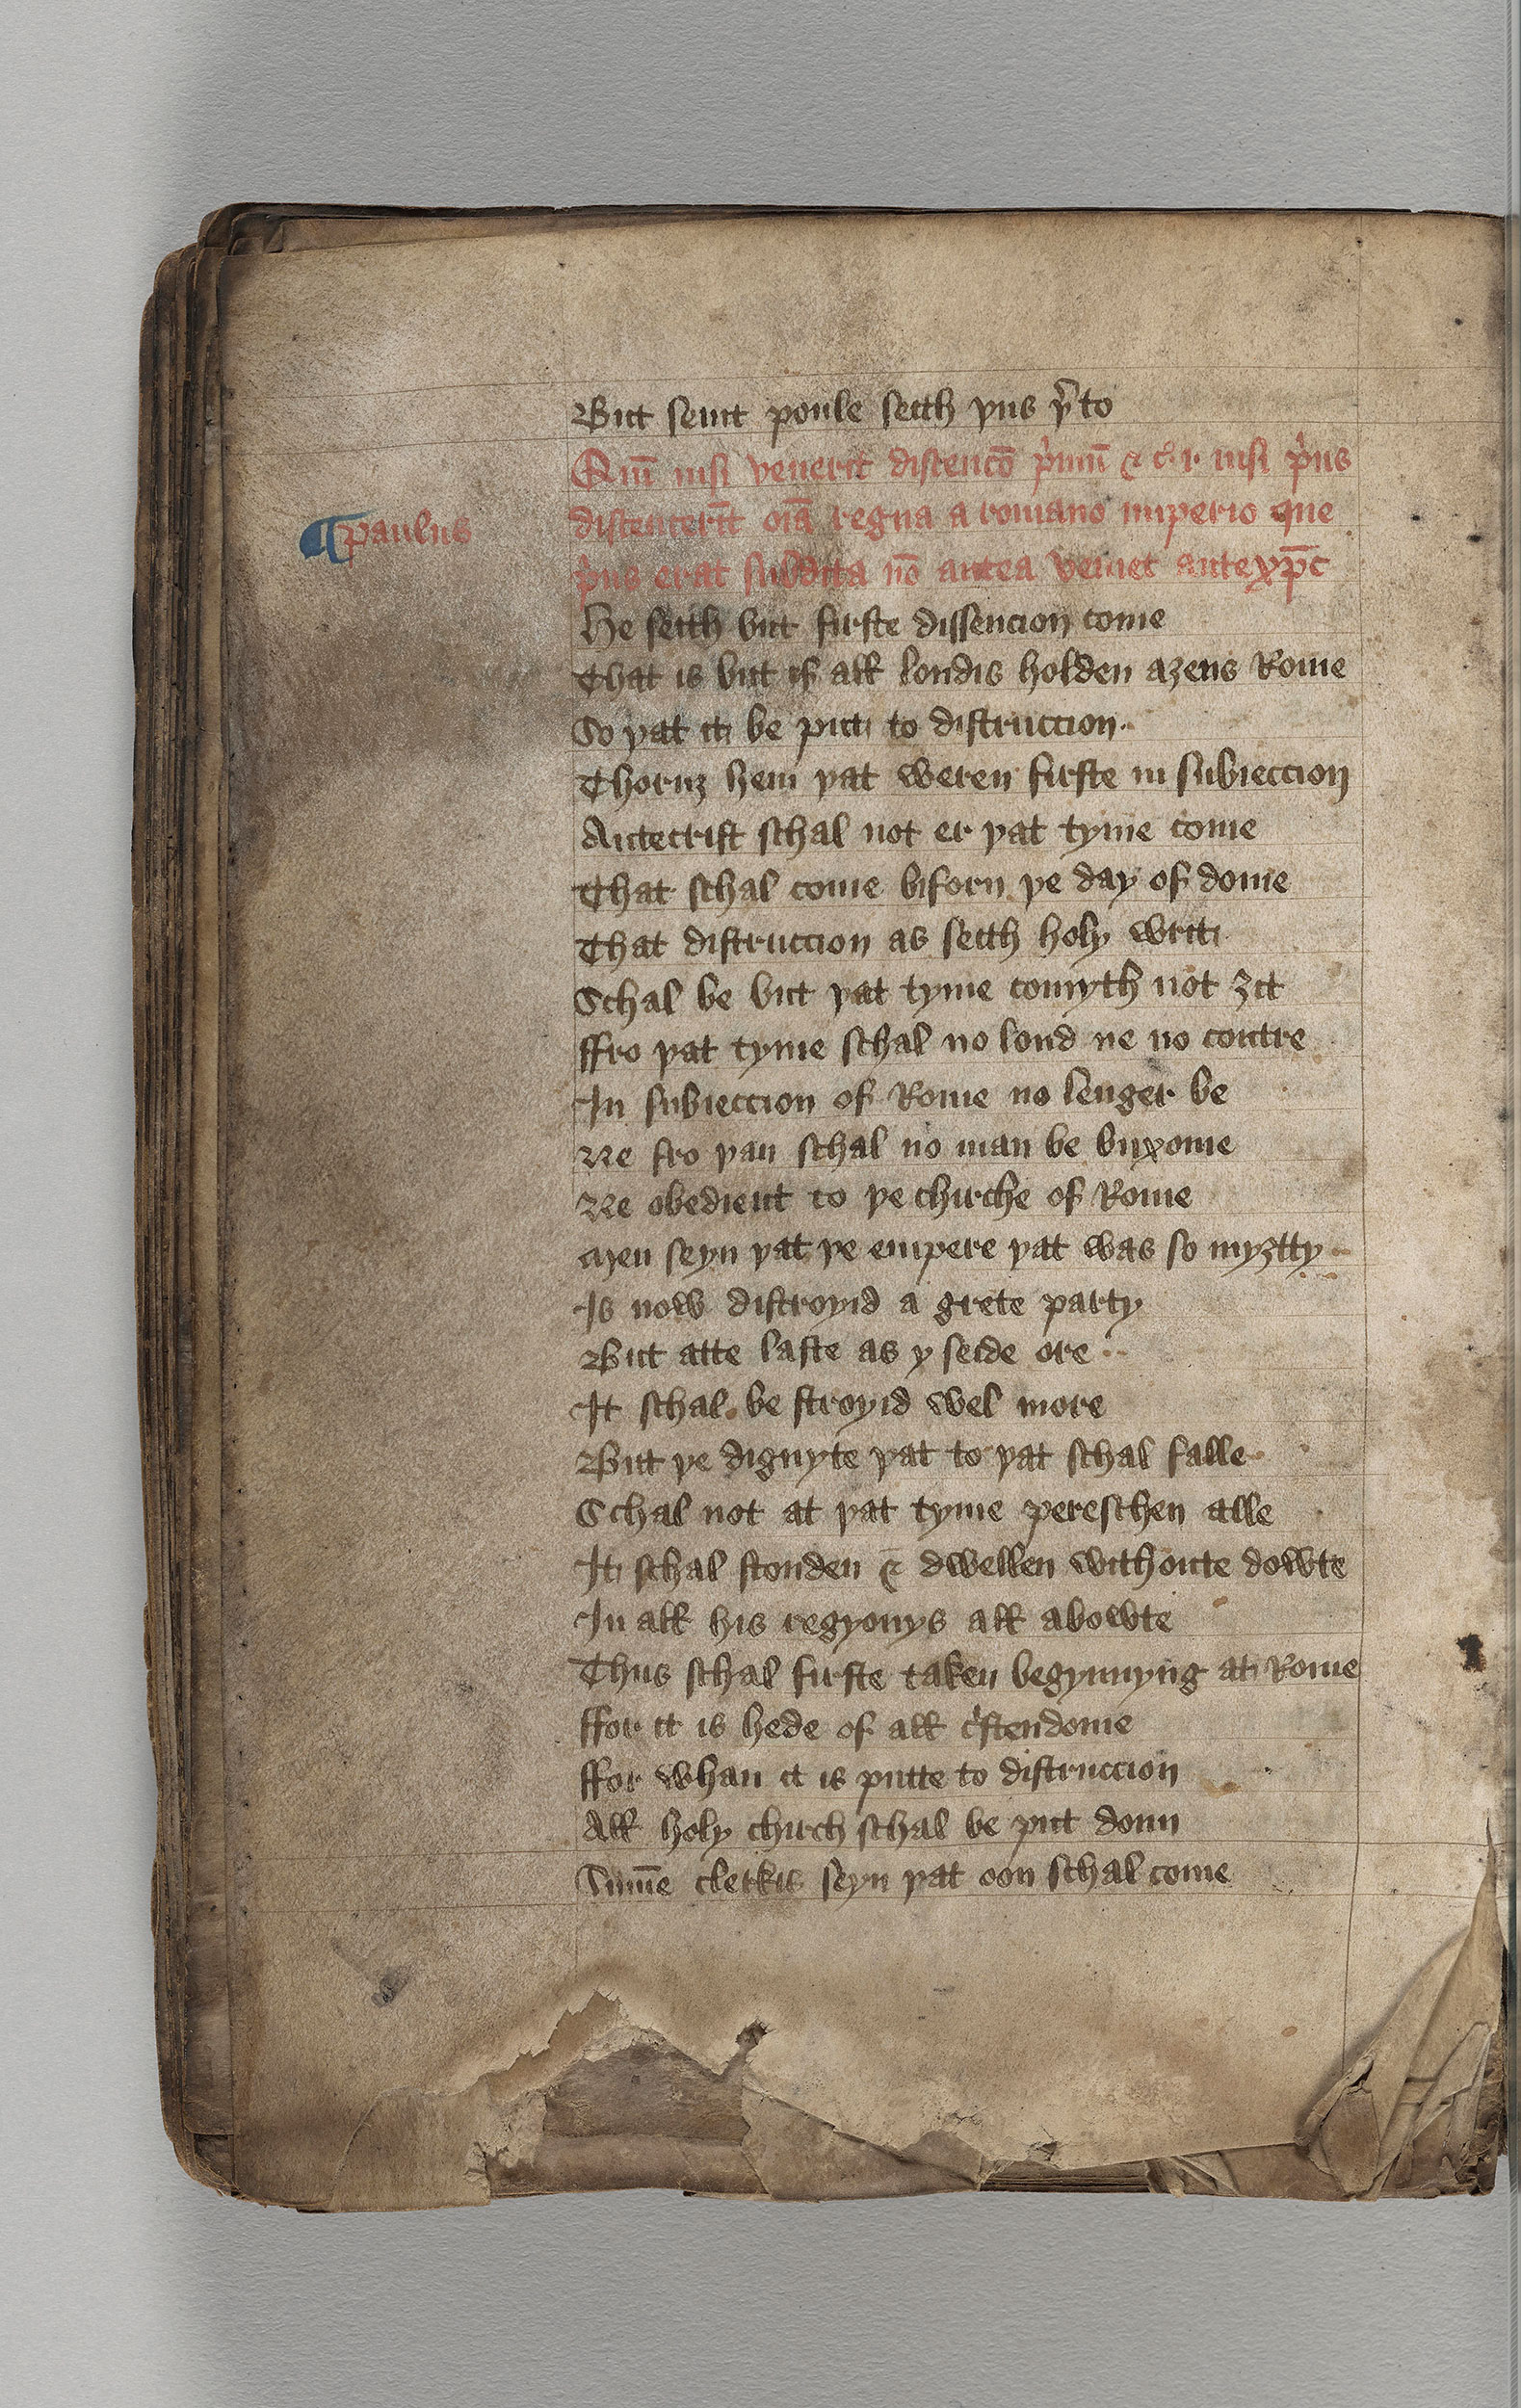 But seint poule seith þus þ͛to
Qm̄ nisi venerit discencō p̍mū ⁊ cͣ .i. nisi p̍us
¶ paulus
discencerīt oīa regna a romano imperio que
p̍us erat subdita nō antea veniet antexp̄c
He seith but firste dissencion come
That is but if all londis holden aȝens Rome
So þat it be putt to distruccion
Thoruȝ hem þat weren firste in subieccion
Antecrist schal not er þat tyme come
That schal come biforn þe day of dome
That distruccion as seith holy writ
Schal be but þat tyme comyth not ȝit
ffro þat tyme schal no lond ne no contre
In subieccion of Rome no lenger be
Ne fro þan schal no man be buxome
Ne obedient to þe chirche of Rome
Men seyn þat þe empere þat was so myȝtty
Is now distroyid a grete party
But atte laste as y seide ore
It schal be stroyid wel more
But þe dignyte þat to þat schal falle
Schal not at þat tyme pereschen alle
It schal stonden ⁊ dwellen withoute dowte
In all his regyonys all abowte
Thus schal firste taken begynnyng at Rome
ffor it is hede of all c̍stendome
ffor whan it is putte to distruccion
All holy chirch schal be put doun
Sum̄e clerkis seyn þat oon schal come